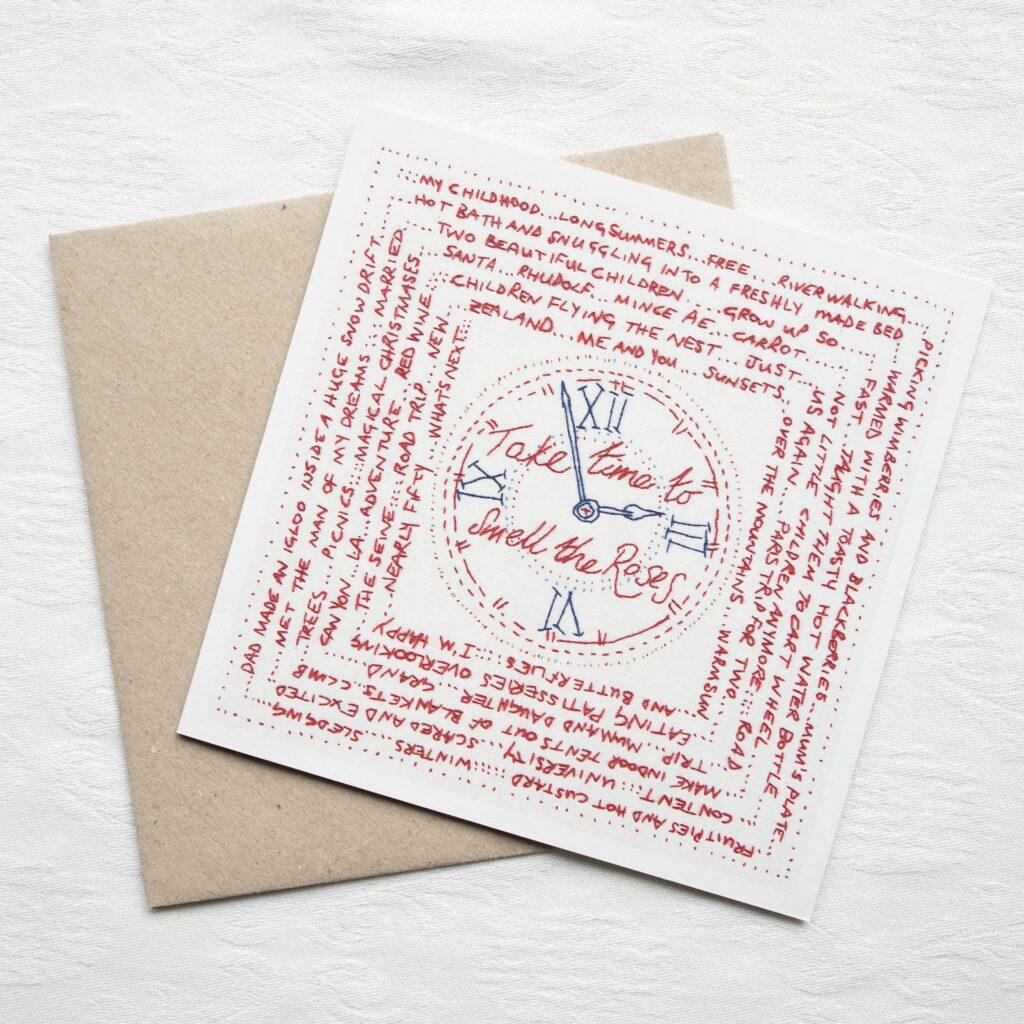 MY CHILDHOOD...LONG SUMMERS...FREE...RIVER WALKING...
PICKING WIMBERRIES AND BLACKBERRIES...MUM'S PLATE
FRUIT PIES AND HOT CUSTARD...WINTERS...SLEDGING
DAD MADE AN IGLOO INSIDE A HUGE SNOW DRIFT
HOT BATH AND SNUGGLING INTO A FRESHLY MADE BED
WARMED WITH A TOASTY HOT WATER BOTTLE
CONTENT::::UNIVERSITY...SCARED AND EXCITED
MET THE MAN OF MY DREAMS::::MARRIED
TWO BEAUTIFUL CHILDREN...GROW UP SO
FAST...TAUGHT THEM TO CART WHEEL
MAKE INDOOR TENTS OUT OF BLANKETS..CLIMB
TREES...PICNICS:::MAGICAL CHRISTMASES
SANTA...RHUDOLF...MINCE AE...CARROT...
NOT LITTLE CHILDREN ANYMORE::::ROAD
TRIP...MUM AND DAUGHTER...GRAND
CANYON...LA...ADVENTURE...RED WINE...
CHILDREN FLYING THE NEST...JUST
US AGAIN...PARIS TRIP FOR TWO
EATING PATISSERIES OVERLOOKING
THE SEINE:::ROAD TRIP...NEW
ZEALAND...ME AND YOU...SUNSETS
OVER THE MOUNTAINS WARM SUN
AND BUTTERFLIES::::I'M HAPPY
NEARLY FIFTY...WHAT'S NEXT:::
XII
Take time to
IX
III
Smell the Roses
VI